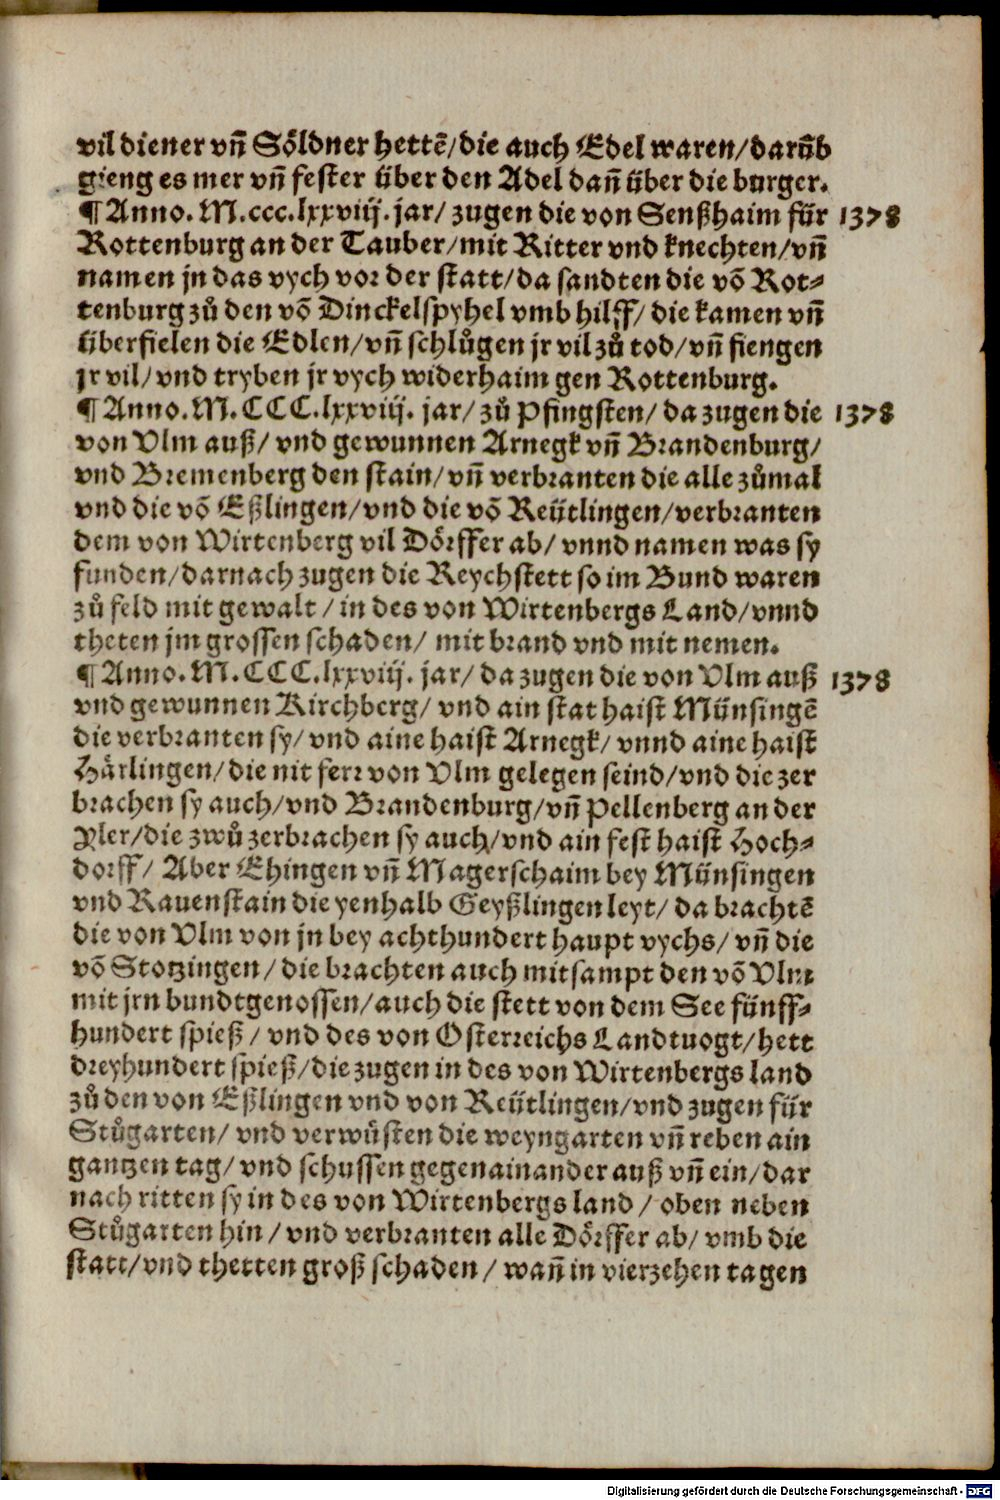 vil diener vñ Söldner hettẽ/die auch Edel waren/darũb
gieng es mer vñ fester über den Adel dañ über die burger.
¶ Anno. M.ccc.lxxviij. jar/ zugen die von Senßhaim für 1378
Rottenburg an der Tauber/mit Ritter vnd knechten/vñ
namen jn das vych vor der statt/da sandten die võ Rot⸗
tenburg zů den võ Dinckelspyhel vmb hilff/ die kamen vñ
überfielen die Edlen/vñ schlůgen jr vil zů tod/vñ fiengen
jr vil/vnd tryben jr vych widerhaim gen Rottenburg.
¶ Anno. M.CCC.lxxviij. jar/ zů Pfingsten/ da zugen die 1378
von Vlm auß/ vnd gewunnen Arnegk vñ Brandenburg/
vnd Bremenberg den stain/vñ verbranten die alle zůmal
vnd die võ Eßlingen/vnd die võ Reütlingen/verbranten
dem von Wirtenberg vil Dörffer ab/ vnnd namen was sy
funden/darnach zugen die Reychstett so im Bund waren
zů feld mit gewalt / in des von Wirtenbergs Land/vnnd
theten jm grossen schaden/ mit brand vnd mit nemen.
¶ Anno. M.CCC.lxxviij. jar/ da zugen die von Vlm auß 1378
vnd gewunnen Kirchberg/ vnd ain stat haist Münsingẽ
die verbranten sy/ vnd aine haist Arnegk/ vnnd aine haist
Härlingen/die nit ferr von Vlm gelegen seind/vnd die zer
brachen sy auch/vnd Brandenburg/vñ Pellenberg an der
Yler/die zwů zerbrachen sy auch/vnd ain fest haist Hoch⸗
dorff/ Aber Ehingen vñ Magerschaim bey Münsingen
vnd Rauenstain die yenhalb Geyßlingen leyt/ da brachtẽ
die von Vlm von jn bey achthundert haupt vychs/ vñ die
võ Stotzingen/ die brachten auch mitsampt den võ Vlm
mit jrn bundtgenossen/auch die stett von dem See fünff⸗
hundert spieß / vnd des von Osterreichs Landtuogt/ hett
dreyhundert spieß/die zugen in des von Wirtenbergs land
zů den von Eßlingen vnd von Reütlingen/vnd zugen für
Stůgarten/ vnd verwůsten die weyngarten vñ reben ain
gantzen tag/ vnd schussen gegenainander auß vñ ein/dar
nach ritten sy in des von Wirtenbergs land / oben neben
Stůgarten hin / vnd verbranten alle Dörffer ab/ vmb die
statt/vnd thetten groß schaden / wañ in vierzehen tagen
Digitalisierung gefördert durch die Deutsche Forschungsgemeinschaft - DFG